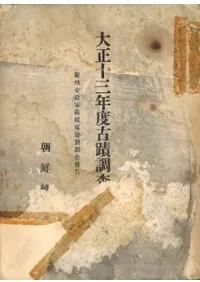 大正十三年度古蹟調査
慶州金鈴塚飾履塚發掘調査報告
朝鮮總